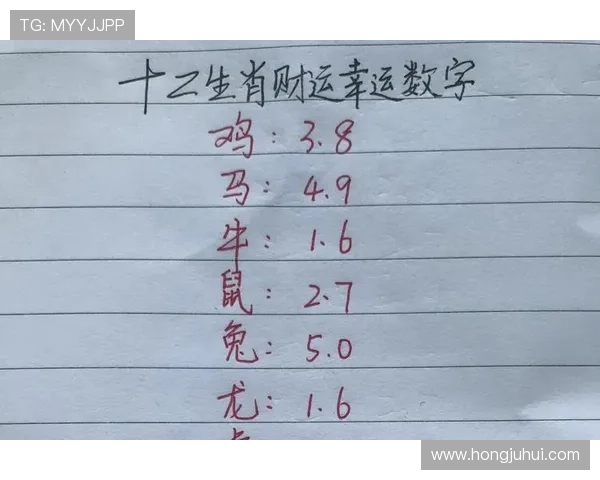 TG: MYYJJPP
十二生肖财运幸运数字
鸡: 3.8
马: 4.9
牛: 1.6
鼠: 2.7
兔: 5.0
龙: 1.6
www.hongjuhui.com